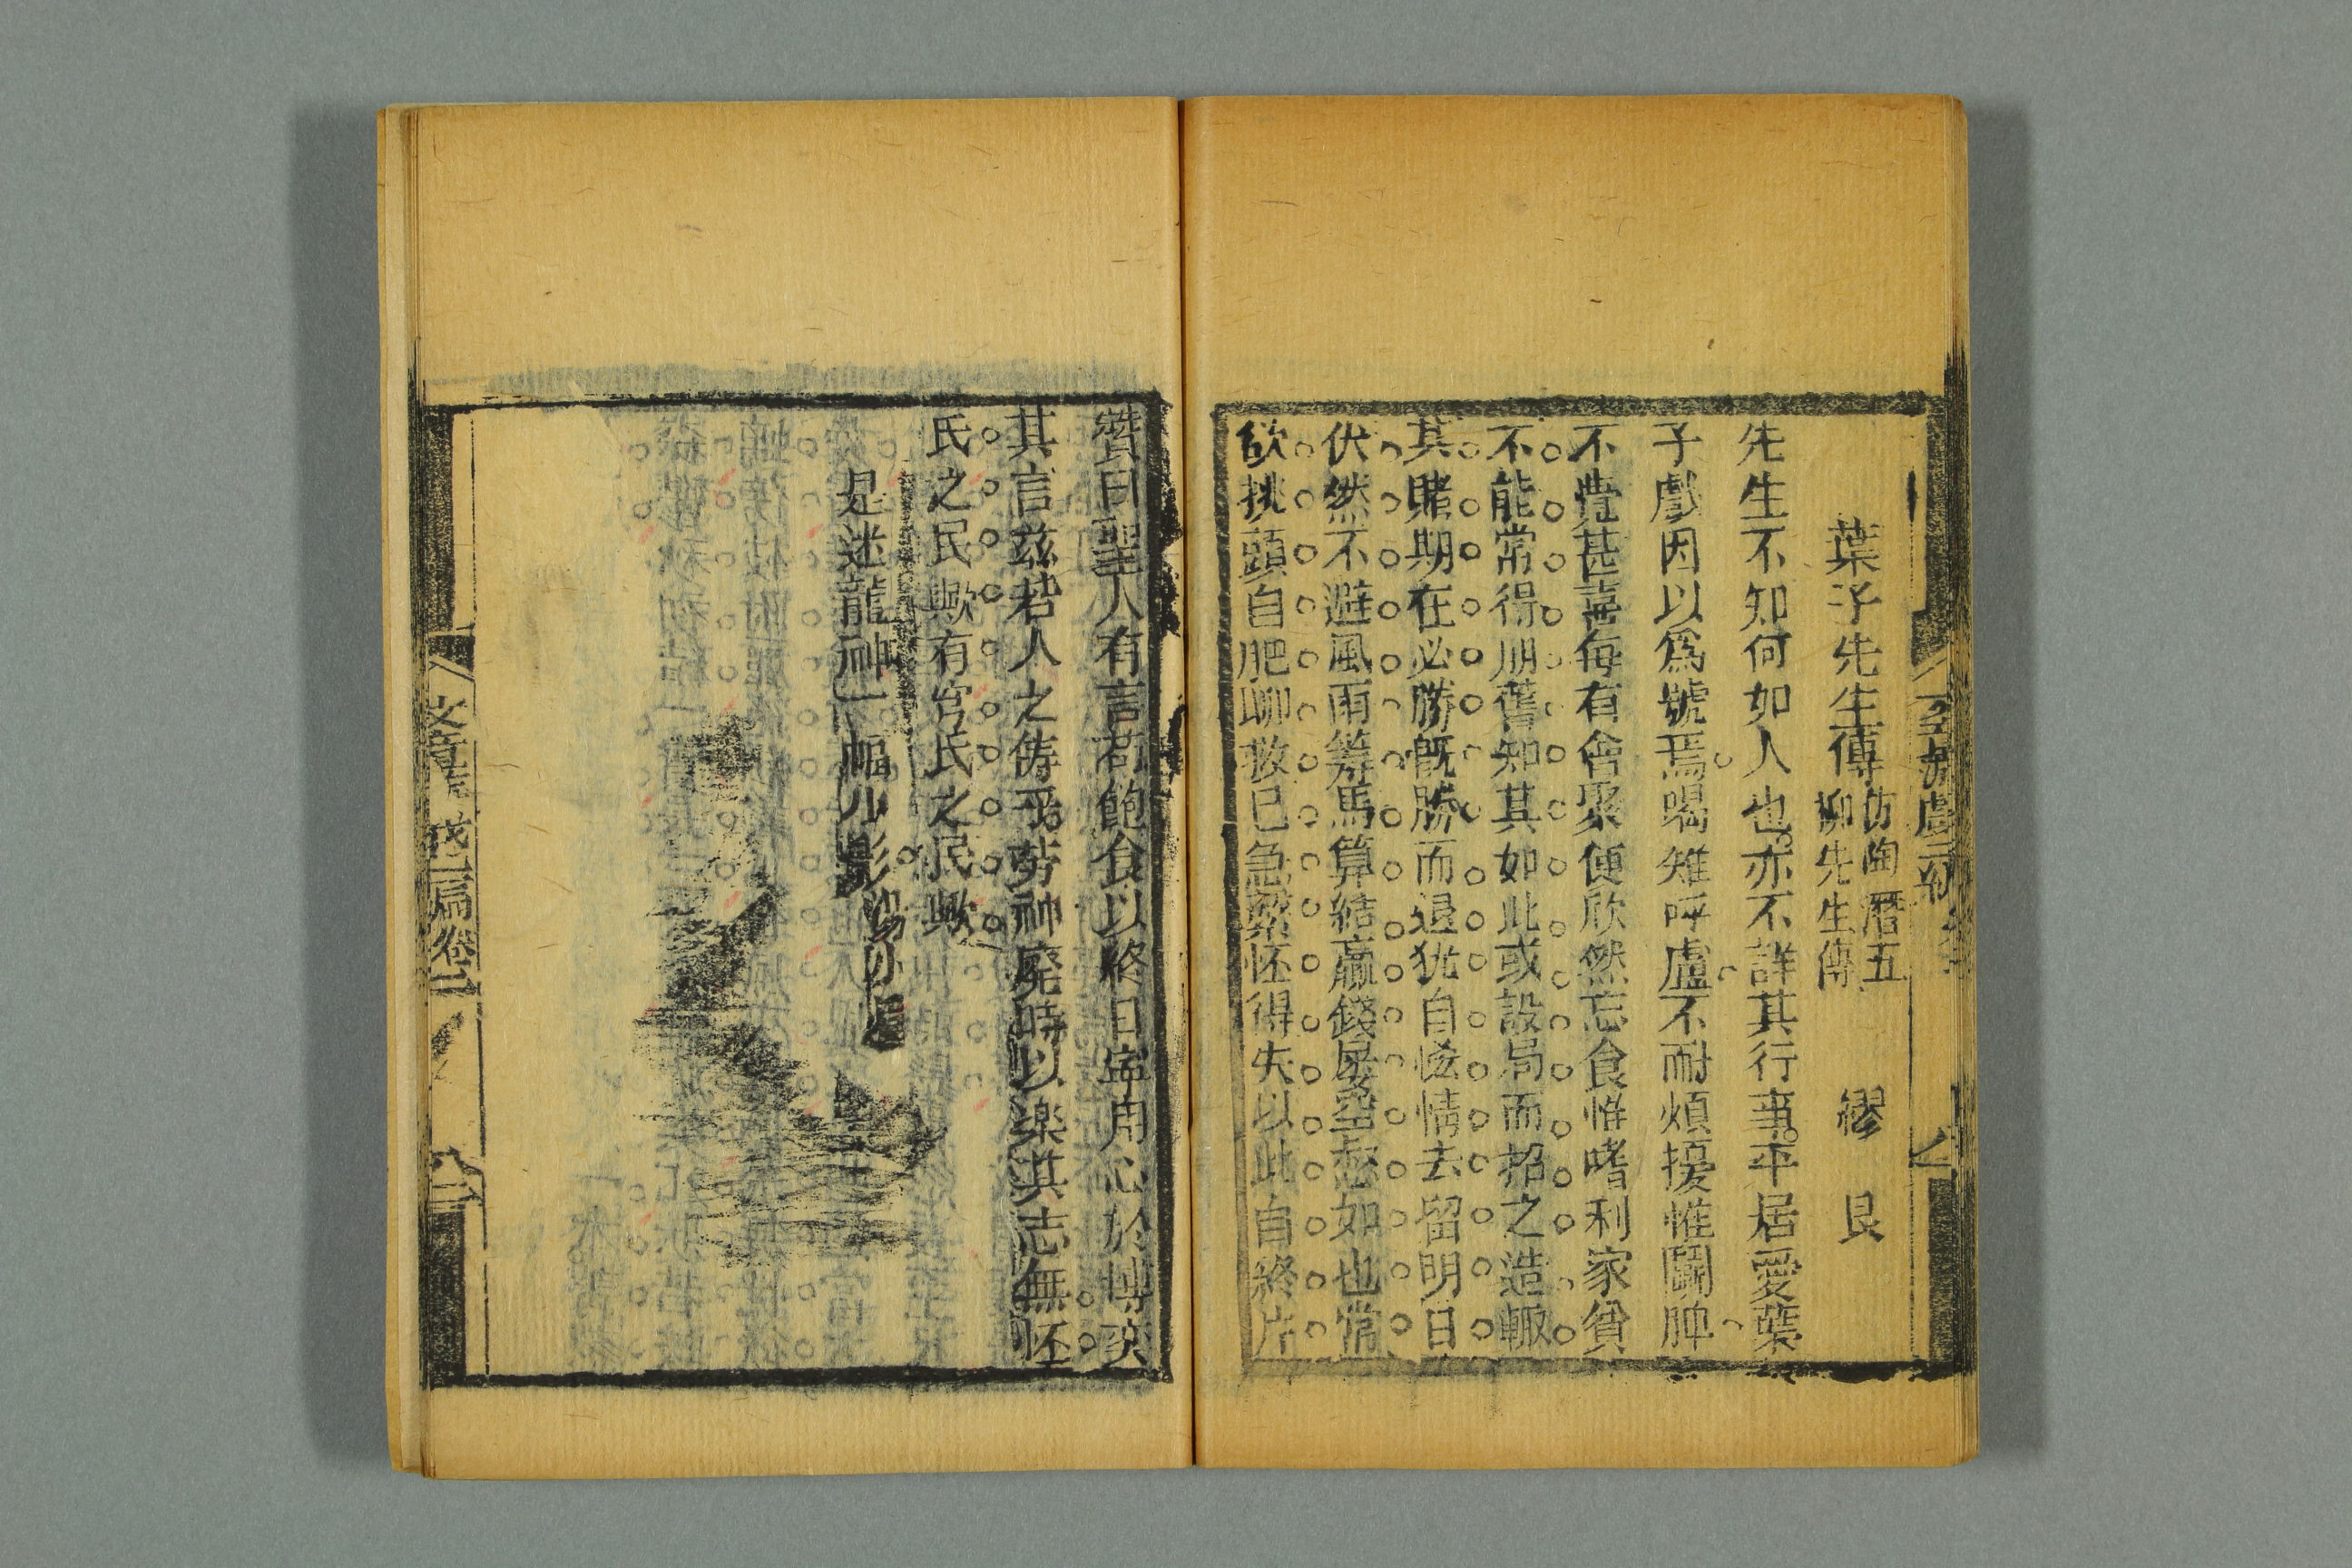 葉子先生傳 仿陶潛五柳先生傳 繆艮
先生不知何如人也亦不詳其行事平居愛葉
子戲因以爲號焉喝雉呼盧不耐煩擾惟鬭牌
不覺甚喜每有會聚便欣然忘食惟嗜利家貧
不能常得朋舊知其如此或設局而招之造輒
其賭期在必勝旣勝而退犹自怯情去留明日
伏然不避風雨籌馬算結羸錢屢空恝如也常
欲挑頭自肥聊救已急繁怀得失以此自終片
贊曰聖人有言苟飽食以終日寧用心於博奕
其言兹若人之俦乎劳神廃時以楽其志無怀
氏之民歟有宫氏之民歟
是迷龍神一幅小影
文章 戊二扁卷二